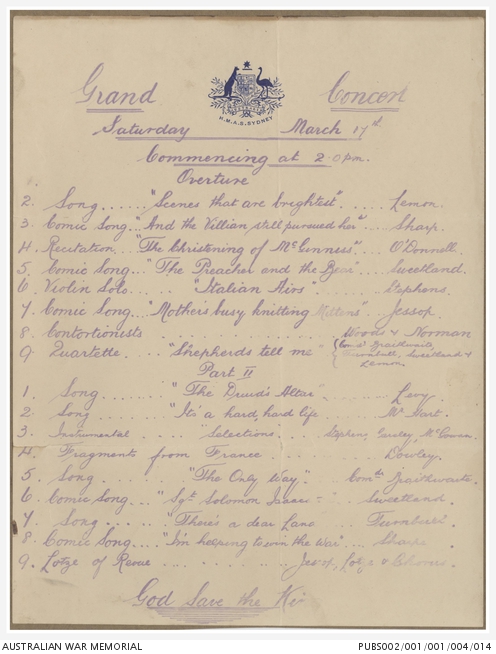 Grand Concert
H.M.A.S. SYDNEY
Saturday March 17th
Commencing at 2.0 pm.
Overture
2. Song...... "Scenes that are brightest"..... Lemon.
3. Comic Song.. "And the Villian still pursued her"... Sharp.
4. Recitation.. "The Christening of McGinness"... O'Donnell.
5. Comic Song... "The Preacher and the Bear"..... Sweetland.
6. Violin Solo..... "Italian Airs"...... Stephens.
7. Comic Song... "Mother's busy knitting Mittens".. Jessop.
8. Contortionists............ Woods & Norman
9. Quartette.... "Shepherds tell me" (Comdr Braithwaite, Turnbull, Sweetland & Lemon
Part II
1. Song...... "The Druid's Altar"........ Levy.
2. Song..... "It's a hard, hard life....... McHart.
3. Instrumental.... "Selections..... Stephens,
4. Fragments from France....... Dowley.
5. Song....... "The Only Way"... Braithwaite.
6. Comic Song... "Sgt Solomon Isaacs"... Sweetland
7. Song..... "There's a dear Land.... Turnbull.
8. Comic Song... "I'm helping to win the War".... Sharp.
9. Lotze of Revue........... Lotze & Chorus.
God Save the
AUSTRALIAN WAR MEMORIAL PUBS002/001/001/004/014